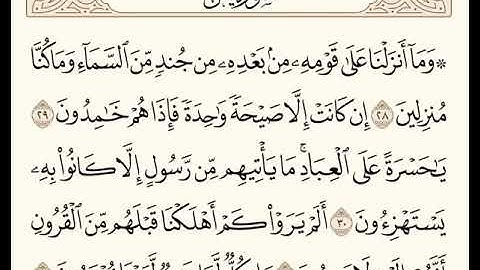 ۞ وَمَآ أَنزَلْنَا عَلَىٰ قَوْمِهِۦ مِنۢ بَعْدِهِۦ مِن جُندٍ مِّنَ ٱلسَّمَآءِ وَمَا كُنَّا
مُنزِلِينَ ٢٨ إِن كَانَتْ إِلَّا صَيْحَةً وَٰحِدَةً فَإِذَا هُمْ خَٰمِدُونَ ٢٩
يَٰحَسْرَةً عَلَى ٱلْعِبَادِ ۚ مَا يَأْتِيهِم مِّن رَّسُولٍ إِلَّا كَانُوا۟ بِهِۦ
يَسْتَهْزِءُونَ ٣٠ أَلَمْ يَرَوْا۟ كَمْ أَهْلَكْنَا قَبْلَهُم مِّنَ ٱلْقُرُونِ